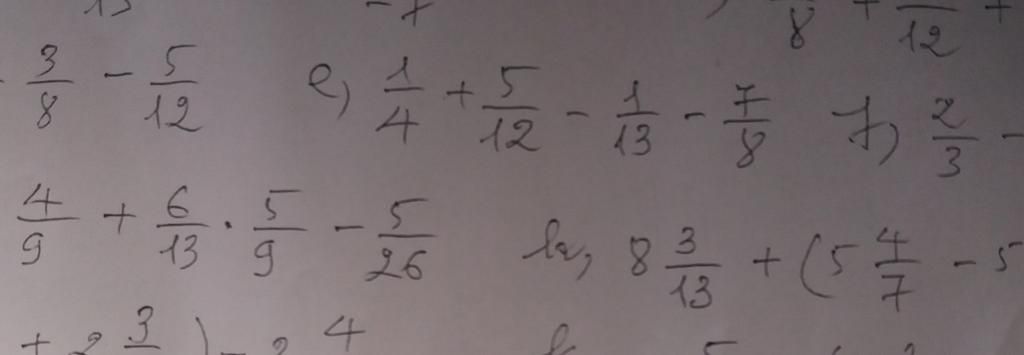 8 + 12 +
3/8 - 5/12 e, 1/4 + 5/12 - 1/13 - 7/8 f, 2/3 -
4/9 + 6/13 · 5/9 - 5/26 h, 8 3/13 + (5 4/7 - 5
+ 2 3 ) - 4